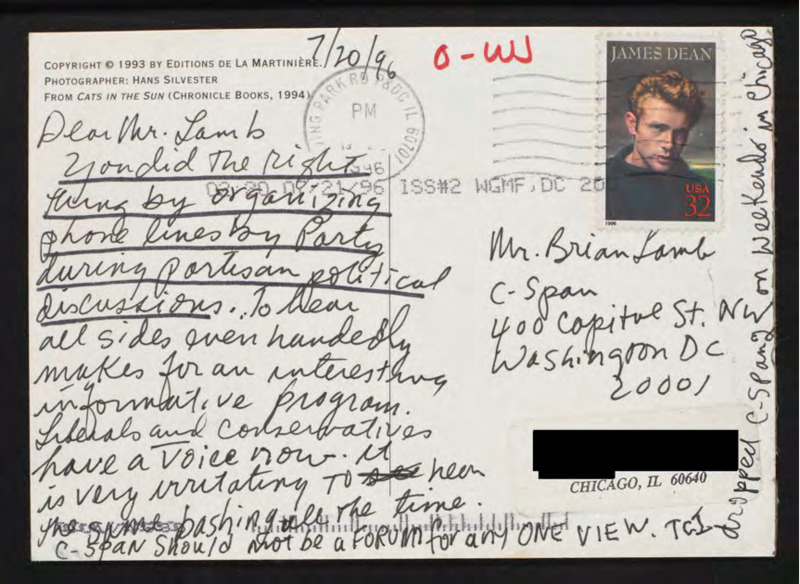 COPYRIGHT © 1993 BY EDITIONS DE LA MARTINIÈRE.
PHOTOGRAPHER: HANS SILVESTER
FROM CATS IN THE SUN (CHRONICLE BOOKS, 1994)
7/20/96
O-W
PM
P&DC IL 60701
ISS#2 WGMF, DC 20
JAMES DEAN
USA
32
1996
Dear Mr. Lamb
You did the right
thing by organizing
phone lines by Party
during partisan political
discussions. To hear
all sides even handedly
makes for an interesting
informative program.
Liberals and conservatives
have a Voice now. it
is very irritating TO see hear
the same bashing all the time.
C-SPAN Should Not be a FORUM for any ONE VIEW. TCI
dropped C-Span2 on weekends in Chicago
Mr. Brian Lamb
C-Span
400 Capitol St. NW
Washington DC
20001
CHICAGO, IL 60640